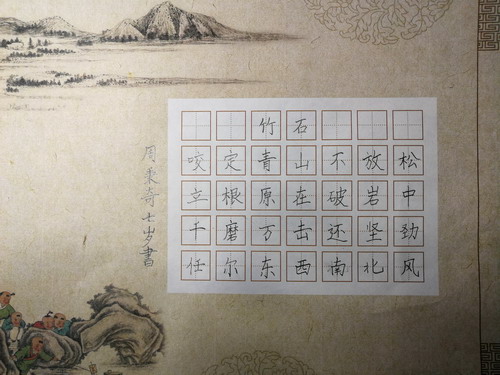 竹石
咬定青山不放松
立根原在破岩中
千磨万击还坚劲
任尔东西南北风
周秉奇七岁書